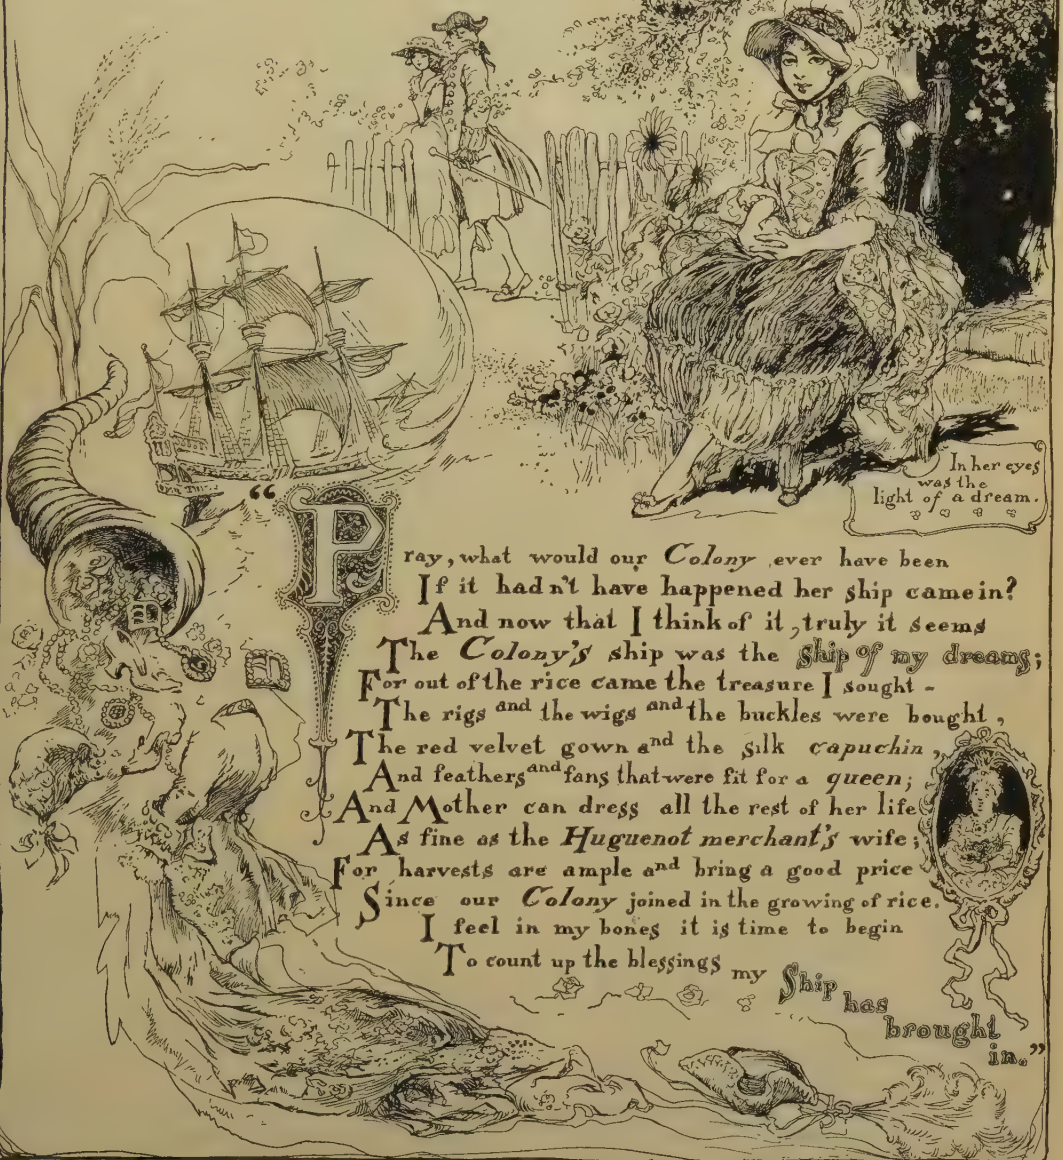 In her eyes
was the
light of a dream.
“Pray, what would our Colony ever have been
If it hadn't have happened her ship came in?
And now that I think of it, truly it seems
The Colony's ship was the ship of my dreams;
For out of the rice came the treasure I sought -
The rigs and the wigs and the buckles were bought,
The red velvet gown and the silk capuchin,
And feathers and fans that were fit for a queen;
And Mother can dress all the rest of her life
As fine as the Huguenot merchant's wife;
For harvests are ample and bring a good price
Since our Colony joined in the growing of rice.
I feel in my bones it is time to begin
To count up the blessings my Ship
has
brought
in.”